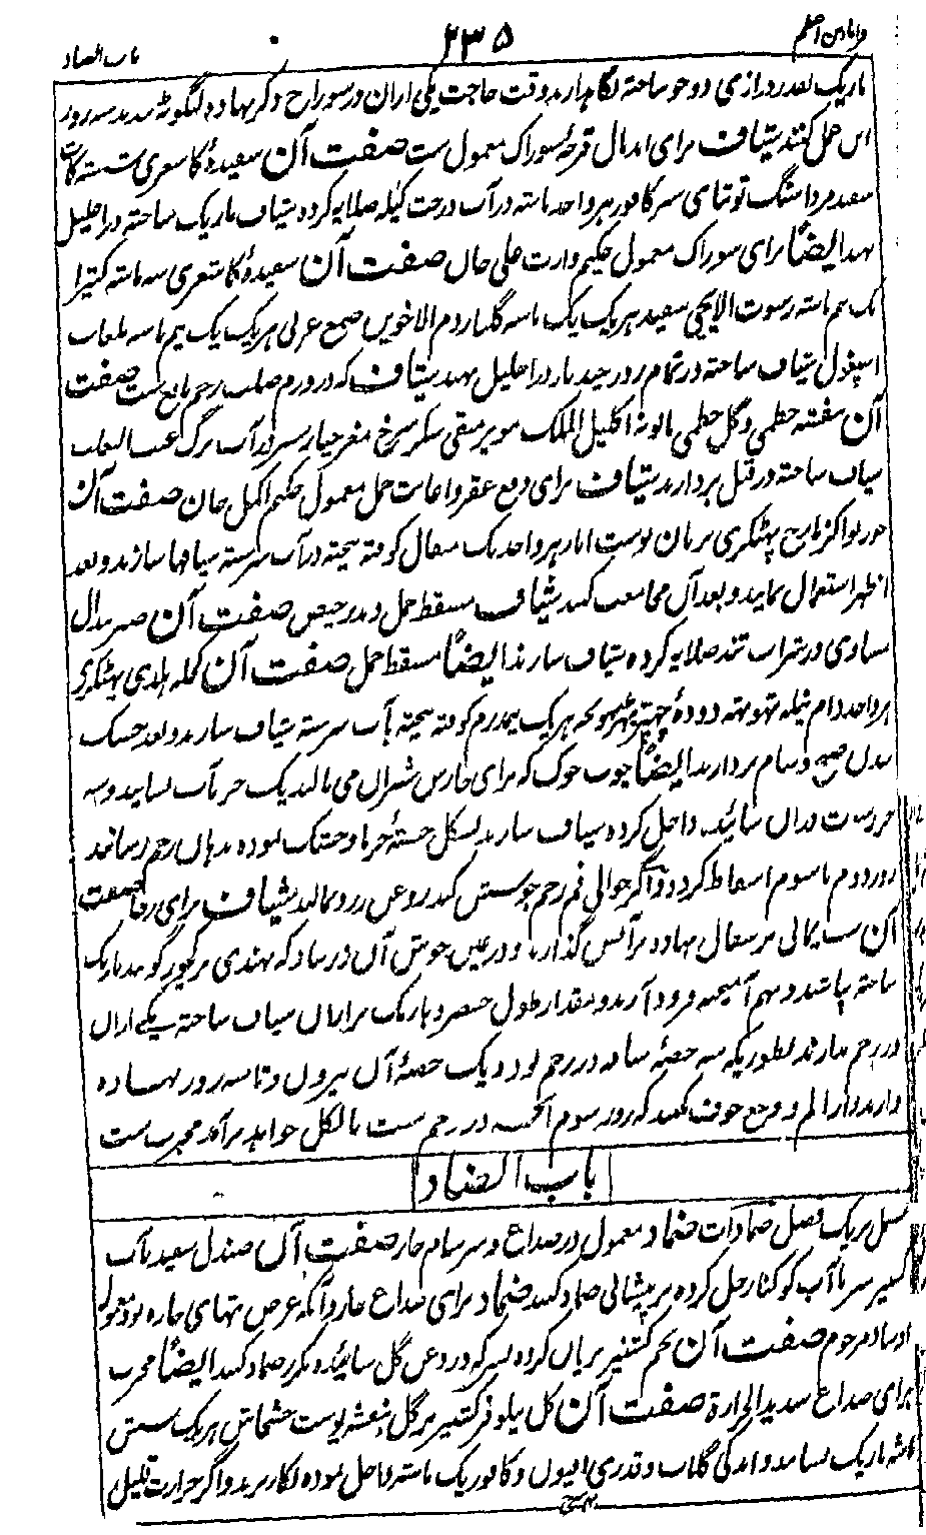 ۲۳۵
باب الصاد
باریک بقدر درازی دو جو ساخته نگاهدارند وقت حاجت یکی ازان در سوراخ ذکر نهاده لنگوٹه بندند سه روز
این عمل کنند شیاف برای اندمال قرحه سوزاک معمول ست صفت آن سفیدهٔ کاشغری شسته
سفید مرداسنگ توتیای سبز کافور هر واحد ماشه در آب درخت کیله صلایه کرده شیاف باریک ساخته در احلیل
نهند ایضاً برای سوزاک معمول حکیم وارث علی خان صفت آن سفیدهٔ کاشغری سه ماشه کتیرا
یک نیم ماشه رسوت الایچی سفید هریک یک ماشه گلنار دم الاخوین صمغ عربی هریک یک نیم ماشه بلعاب
اسپغول شیاف ساخته در تمام روز چند بار در احلیل نهند شیاف که در ورم صلب رحم نافع ست صفت
آن بنفشه خطمی و گل خطمی بابونه اکلیل الملک مویز منقی شکر سرخ مغز خیارشنبر در آب برگ عنب الثعلب
شیاف ساخته در قبل بردارند شیاف برای دفع عقر و اعانت حمل معمول حکیم اکمل خان صفت آن
جوزبوا پهٹکری بریان پوست انار هر واحد یک مثقال کوفته بیخته در آب سرشته شیافها سازند و بعد
اطهر استعمال نمایند و بعد آن مجامعت کنند شیاف مسقط حمل و مدر حیض صفت آن صبر
مساوی در شراب تند صلایه کرده شیاف سازند ایضاً مسقط حمل صفت آن هلدی پهٹکری
هر واحد دام نیله تهوتهه دودهٔ هریک نیمدرم کوفته بیخته بآب سرشته شیاف سازند و بعد خشک
شدن صبح و شام بردارند ایضاً چوب خوک که برای خارش شتران می مالند یک جز بآب بسایند و سه
جز بران سائیده داخل کرده شیاف سازند بشکل خستهٔ خرما و خشک نموده بدهان رحم رسانند
روز دوم یا سوم اسقاط گردد و اگر حوالی فم رحم جوشش کند روغن زرد مالند شیاف برای صفت
آن بر سفال نهاده بر آتش گذارند و در عین جوش آن که بهندی گویند باریک
ساخته پاشند و بهم آمیخته فرود آرند و مقدار طول خنصر و باریک برابر آن شیاف ساخته یکی ازان
در رحم بدارند بطوریکه سه حصهٔ شافه در رحم بود و یک حصهٔ آن بیرون و تا سه روز نهاده
دارند و از الم و وجع خوف نکنند که روز سوم آنچه در رحم ست بالکل خواهد برآمد مجرب ست
باب الضاد
مشتمل بر یک فصل ضمادات ضماد معمول در صداع و سرسام حار صفت آن صندل سفید بآب
کشنیز سبز یا آب کوکنار حل کرده بر پیشانی ضماد کنند ضماد برای صداع حار و آنکه عرض تپهای حاره بود معمول
اوستاد مرحوم صفت آن تخم کشنیز بریان کرده بسرکه و روغن گل سائیده مکرر ضماد کنند ایضاً مجرب
برای صداع شدید الحرارة صفت آن گل نیلوفر کشنیز گل بنفشه پوست خشخاش هریک شش
ماشه باریک بسایند و اندکی گلاب و قدری افیون و کافور یک ماشه داخل نموده بکار برند و اگر حرارت قلیل